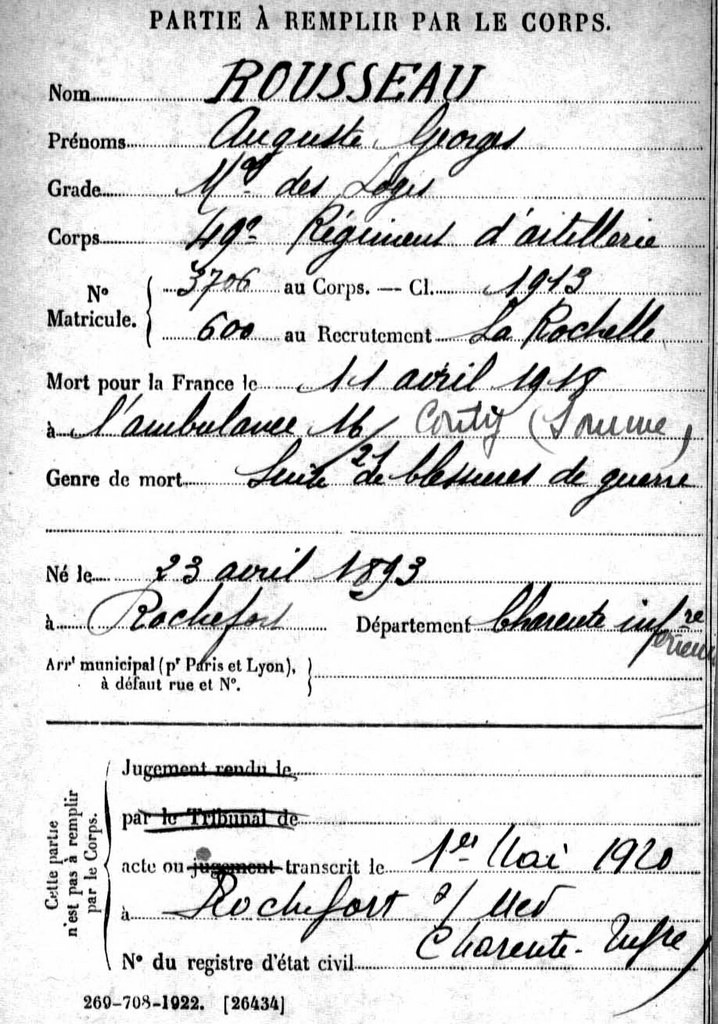 PARTIE À REMPLIR PAR LE CORPS.
Nom ROUSSEAU
Prénoms Auguste Georges
Grade Mal des Logis
Corps 49e Régiment d'artillerie
N° Matricule. 3706 au Corps. — Cl. 1913
600 au Recrutement La Rochelle
Mort pour la France le 11 avril 1918
à l'ambulance 16/21 Conty (Somme)
Genre de mort Suite de blessures de guerre
Né le 23 avril 1893
à Rochefort Département Charente infre érieure
Arrt municipal (pr Paris et Lyon),
à défaut rue et N°.
Cette partie
n'est pas à remplir
par le Corps.
Jugement rendu le
par le Tribunal de
acte ou jugement transcrit le 1er Mai 1920
à Rochefort s/ Mer
Charente-Infre
N° du registre d'état civil
260-708-1922. [26434]